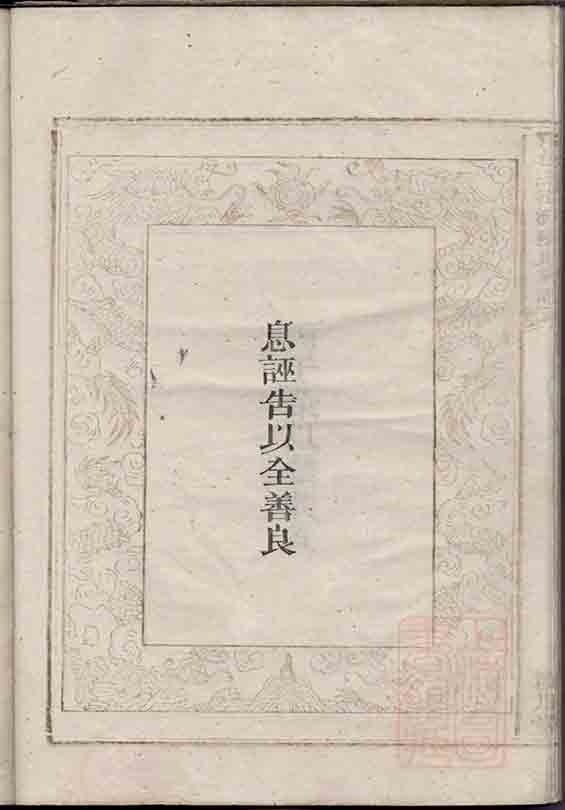 息誣告以全善良